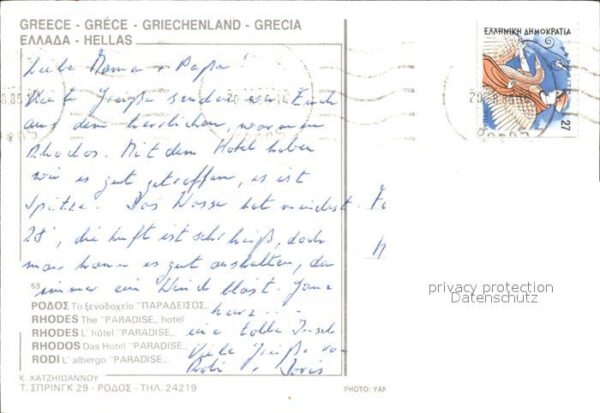 GREECE - GRÉCE - GRIECHENLAND - GRECIA
ΕΛΛΑΔΑ - HELLAS
ΕΛΛΗΝΙΚΗ ΔΗΜΟΚΡΑΤΙΑ
27
Liebe Mama + Papa
Viele Grüße senden wir Euch
aus dem herrlichen, warmen
Rhodos. Mit dem Hotel haben
wir es gut getroffen, es ist
Spitze. Das Wasser hat mindest.
28°, die Luft ist sehr heiß, doch
man kann es gut aushalten, da
immer ein Wind bläst. Ganz
kurz ...
eine tolle Insel
Viele Grüße
Doris
privacy protection
Datenschutz
53
ΡΟΔΟΣ Το ξενοδοχείο "ΠΑΡΑΔΕΙΣΟΣ,,
RHODES The "PARADISE,, hotel
RHODES L' hôtel "PARADISE,,
RHODOS Das Hotel "PARADISE,,
RODI L' albergo "PARADISE,,
Κ. ΧΑΤΖΗΙΩΑΝΝΟΥ
Τ. ΣΠΡΙΝΓΚ 29 - ΡΟΔΟΣ - ΤΗΛ. 24219
PHOTO: YAN